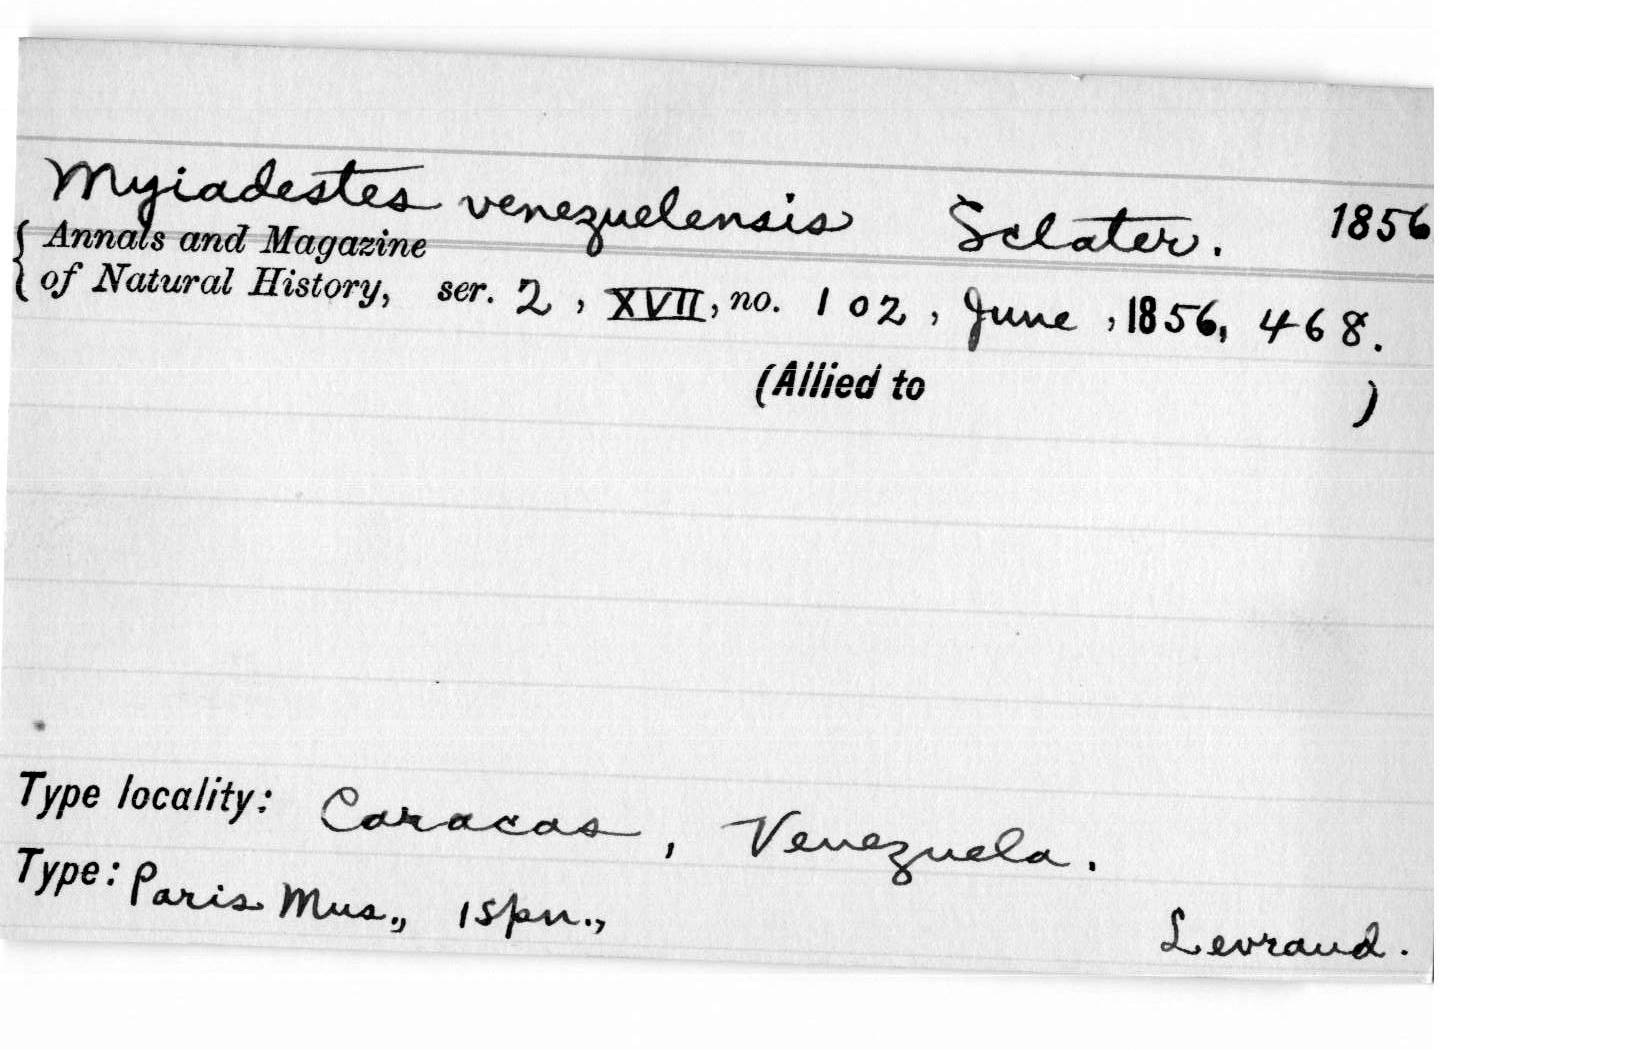 Myiadestes venezuelensis Sclater. 1856
Annals and Magazine
of Natural History, ser. 2, XVII, no. 102, June, 1856, 468.
(Allied to )
Type locality: Caracas, Venezuela.
Type: Paris Mus., 1 spn., Levraud.